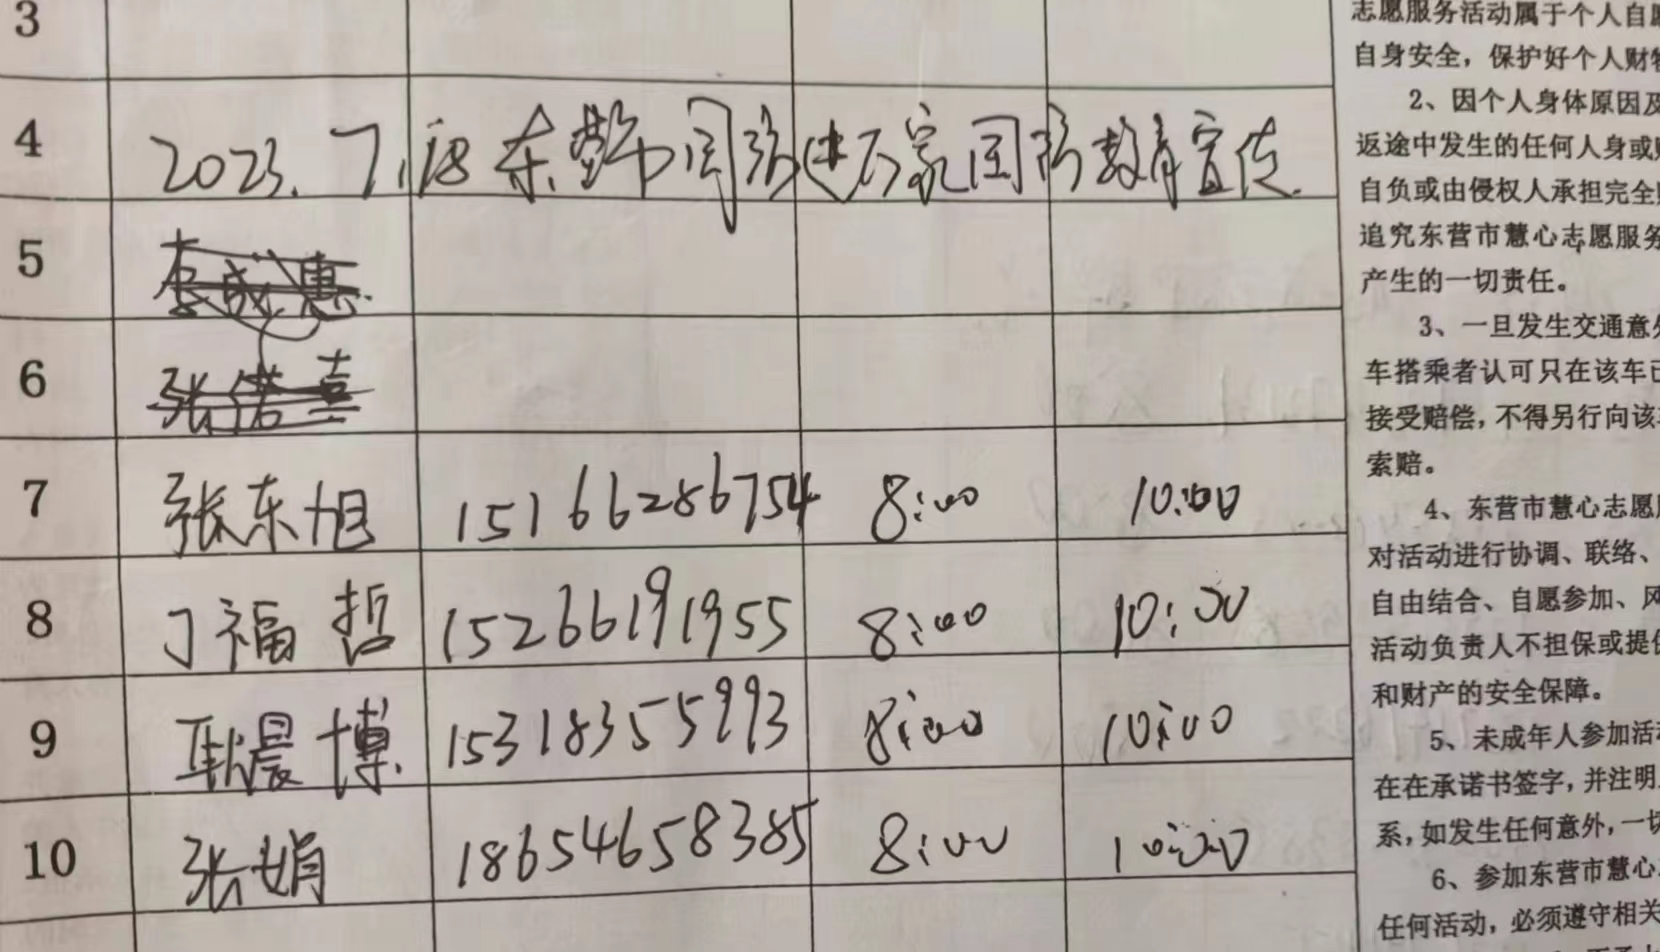 3
4 2023.7.18 东营 国防进万家国防教育宣传
5
6
7 张东旭 15166286754 8:00 10:00
8 丁福哲 15266191955 8:00 10:00
9 耿晨博 15318355993 8:00 10:00
10 张娟 18654658385 8:00 10:00
志愿服务活动属于个人自愿
自身安全，保护好个人财物
2、因个人身体原因及
返途中发生的任何人身或财
自负或由侵权人承担完全
追究东营市慧心志愿服务
产生的一切责任。
3、一旦发生交通意外
车搭乘者认可只在该车已
接受赔偿，不得另行向该车
索赔。
4、东营市慧心志愿服
对活动进行协调、联络、
自由结合、自愿参加、风
活动负责人不担保或提供
和财产的安全保障。
5、未成年人参加活动
在在承诺书签字，并注明
系，如发生任何意外，一切
6、参加东营市慧心
任何活动，必须遵守相关